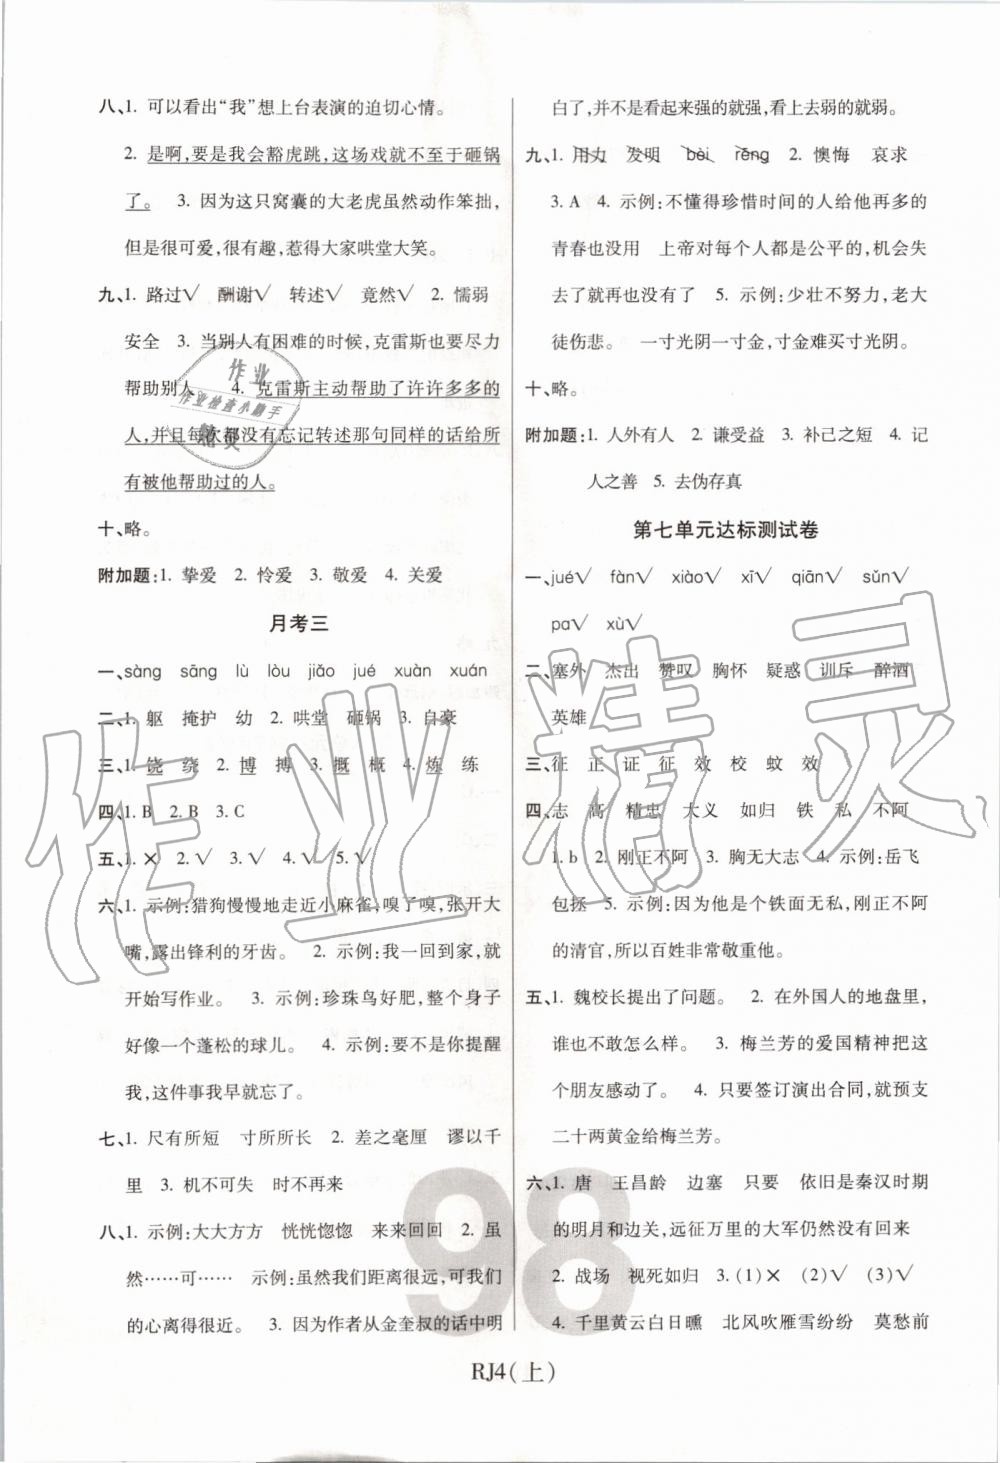 八、1. 可以看出“我”想上台表演的迫切心情。
2. 是啊,要是我会豁虎跳,这场戏就不至于砸锅
了。 3. 因为这只窝囊的大老虎虽然动作笨拙,
但是很可爱,很有趣,惹得大家哄堂大笑。
九、1. 路过√ 酬谢√ 转述√ 竟然√ 2. 懦弱
安全 3. 当别人有困难的时候,克雷斯也要尽力
帮助别人 4. 克雷斯主动帮助了许许多多的
人,并且每次都没有忘记转述那句同样的话给所
有被他帮助过的人。
十、略。
附加题:1. 挚爱 2. 怜爱 3. 敬爱 4. 关爱
月考三
一、sàng sāng lù lòu jiǎo jué xuàn xuán
二、1. 躯 掩护 幼 2. 哄堂 砸锅 3. 自豪
三、1. 饶 绕 2. 博 搏 3. 慨 概 4. 炼 练
四、1. B 2. B 3. C
五、1. × 2. √ 3. √ 4. √ 5. √
六、1. 示例:猎狗慢慢地走近小麻雀,嗅了嗅,张开大
嘴,露出锋利的牙齿。 2. 示例:我一回到家,就
开始写作业。 3. 示例:珍珠鸟好肥,整个身子
好像一个蓬松的球儿。 4. 示例:要不是你提醒
我,这件事我早就忘了。
七、1. 尺有所短 寸所所长 2. 差之毫厘 谬以千
里 3. 机不可失 时不再来
八、1. 示例:大大方方 恍恍惚惚 来来回回 2. 虽
然……可…… 示例:虽然我们距离很远,可我们
的心离得很近。 3. 因为作者从金奎叔的话中明
白了,并不是看起来强的就强,看上去弱的就弱。
九、1. 用力 发明 bèi rēng 2. 懊悔 哀求
3. A 4. 示例:不懂得珍惜时间的人给他再多的
青春也没用 上帝对每个人都是公平的,机会失
去了就无法再有了 5. 示例:少壮不努力,老大
徒伤悲。 一寸光阴一寸金,寸金难买寸光阴。
十、略。
附加题:1. 人外有人 2. 谦受益 3. 补己之短 4. 记
人之善 5. 去伪存真
第七单元达标测试卷
一、jué√ fàn√ xiào√ xī√ qiān√ sǔn√
pa√ xù√
二、塞外 杰出 赞叹 胸怀 疑惑 训斥 醉酒
英雄
三、征 正 证 征 效 校 蚊 效
四、志 高 精忠 大义 如归 铁 私 不阿
1. b 2. 刚正不阿 3. 胸无大志 4. 示例:岳飞
包拯 5. 示例:因为他是个铁面无私,刚正不阿
的清官,所以百姓非常敬重他。
五、1. 魏校长提出了问题。 2. 在外国人的地盘里,
谁也不敢怎么样。 3. 梅兰芳的爱国精神把这
个朋友感动了。 4. 只要签订演出合同,就预支
二十两黄金给梅兰芳。
六、1. 唐 王昌龄 边塞 只要 依旧是秦汉时期
的明月和边关,远征万里的大军仍然没有回来
2. 战场 视死如归 3. (1)× (2)√ (3)√
4. 千里黄云白日曛 北风吹雁雪纷纷 莫愁前
98
RJ4(上)
作业
作业检查小助手
精灵
作业精灵